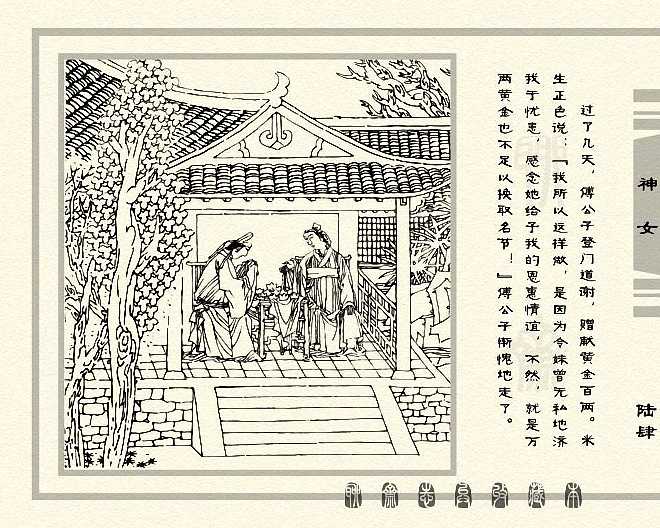 神女
陆肆
过了几天，傅公子登门道谢，赠献黄金百两。米
生正色说：『我所以这样做，是因为令妹曾无私地济
我于忧患，感念她给予我的恩惠情谊，不然，就是万
两黄金也不足以换取名节！』傅公子惭愧地走了。
聊斋志异收藏本